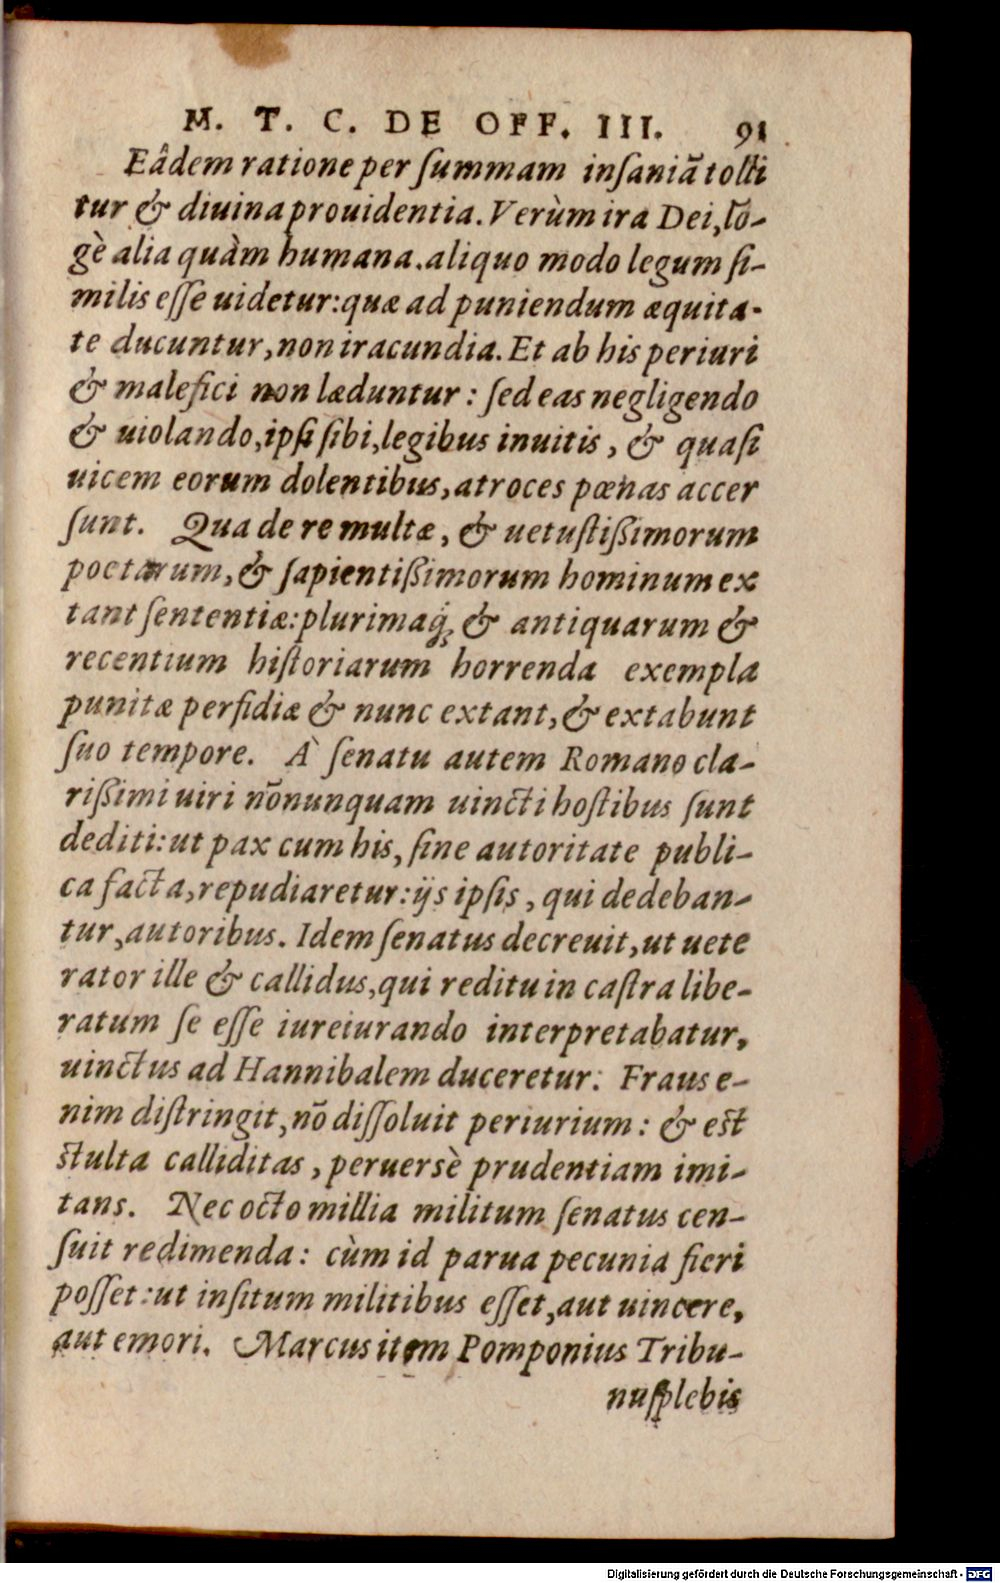 M. T. C. DE OFF. III. 91
Eâdem ratione per ſummam inſaniã tolli
tur & diuina prouidentia. Verùm ira Dei, lõ-
gè alia quàm humana. aliquo modo legum ſi-
milis eſſe uidetur: quæ ad puniendum æquita-
te ducuntur, non iracundia. Et ab his periuri
& malefici non læduntur: ſed eas negligendo
& uiolando, ipſi ſibi, legibus inuitis, & quaſi
uicem eorum dolentibus, atroces pœnas accer
ſunt. Qua de re multæ, & uetuſtißimorum
poetarum, & ſapientißimorum hominum ex
tant ſententiæ: plurimaq́ꝫ & antiquarum &
recentium hiſtoriarum horrenda exempla
punitæ perfidiæ & nunc extant, & extabunt
ſuo tempore. À ſenatu autem Romano cla-
rißimi uiri nõnunquam uincti hoſtibus ſunt
dediti: ut pax cum his, ſine autoritate publi-
ca facta, repudiaretur: ijs ipſis, qui dedeban-
tur, autoribus. Idem ſenatus decreuit, ut uete
rator ille & callidus, qui reditu in caſtra libe-
ratum ſe eſſe iureiurando interpretabatur,
uinctus ad Hannibalem duceretur: Fraus e-
nim diſtringit, nõ diſſoluit periurium: & eſt
ſtulta calliditas, peruersè prudentiam imi-
tans. Nec octo millia militum ſenatus cen-
ſuit redimenda: cùm id parua pecunia fieri
poſſet: ut inſitum militibus eſſet, aut uincere,
aut emori. Marcus item Pomponius Tribu-
nuſplebis
Digitalisierung gefördert durch die Deutsche Forschungsgemeinschaft - DFG